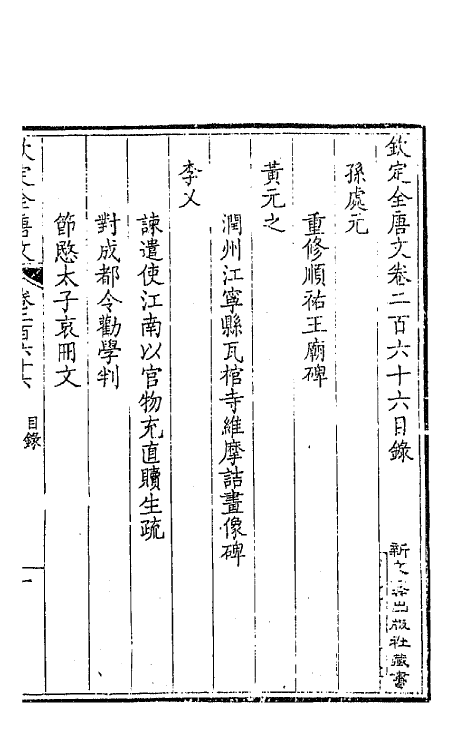 欽定全唐文卷二百六十六目錄
孫處元
重修順祐王廟碑
黃元之
潤州江寧縣瓦棺寺維摩詰畫像碑
李乂
諫遣使江南以官物充直贖生疏
對成都令勸學判
節愍太子哀冊文
欽定全唐文 卷二百六十六 目錄 一
新文豐出版社藏書